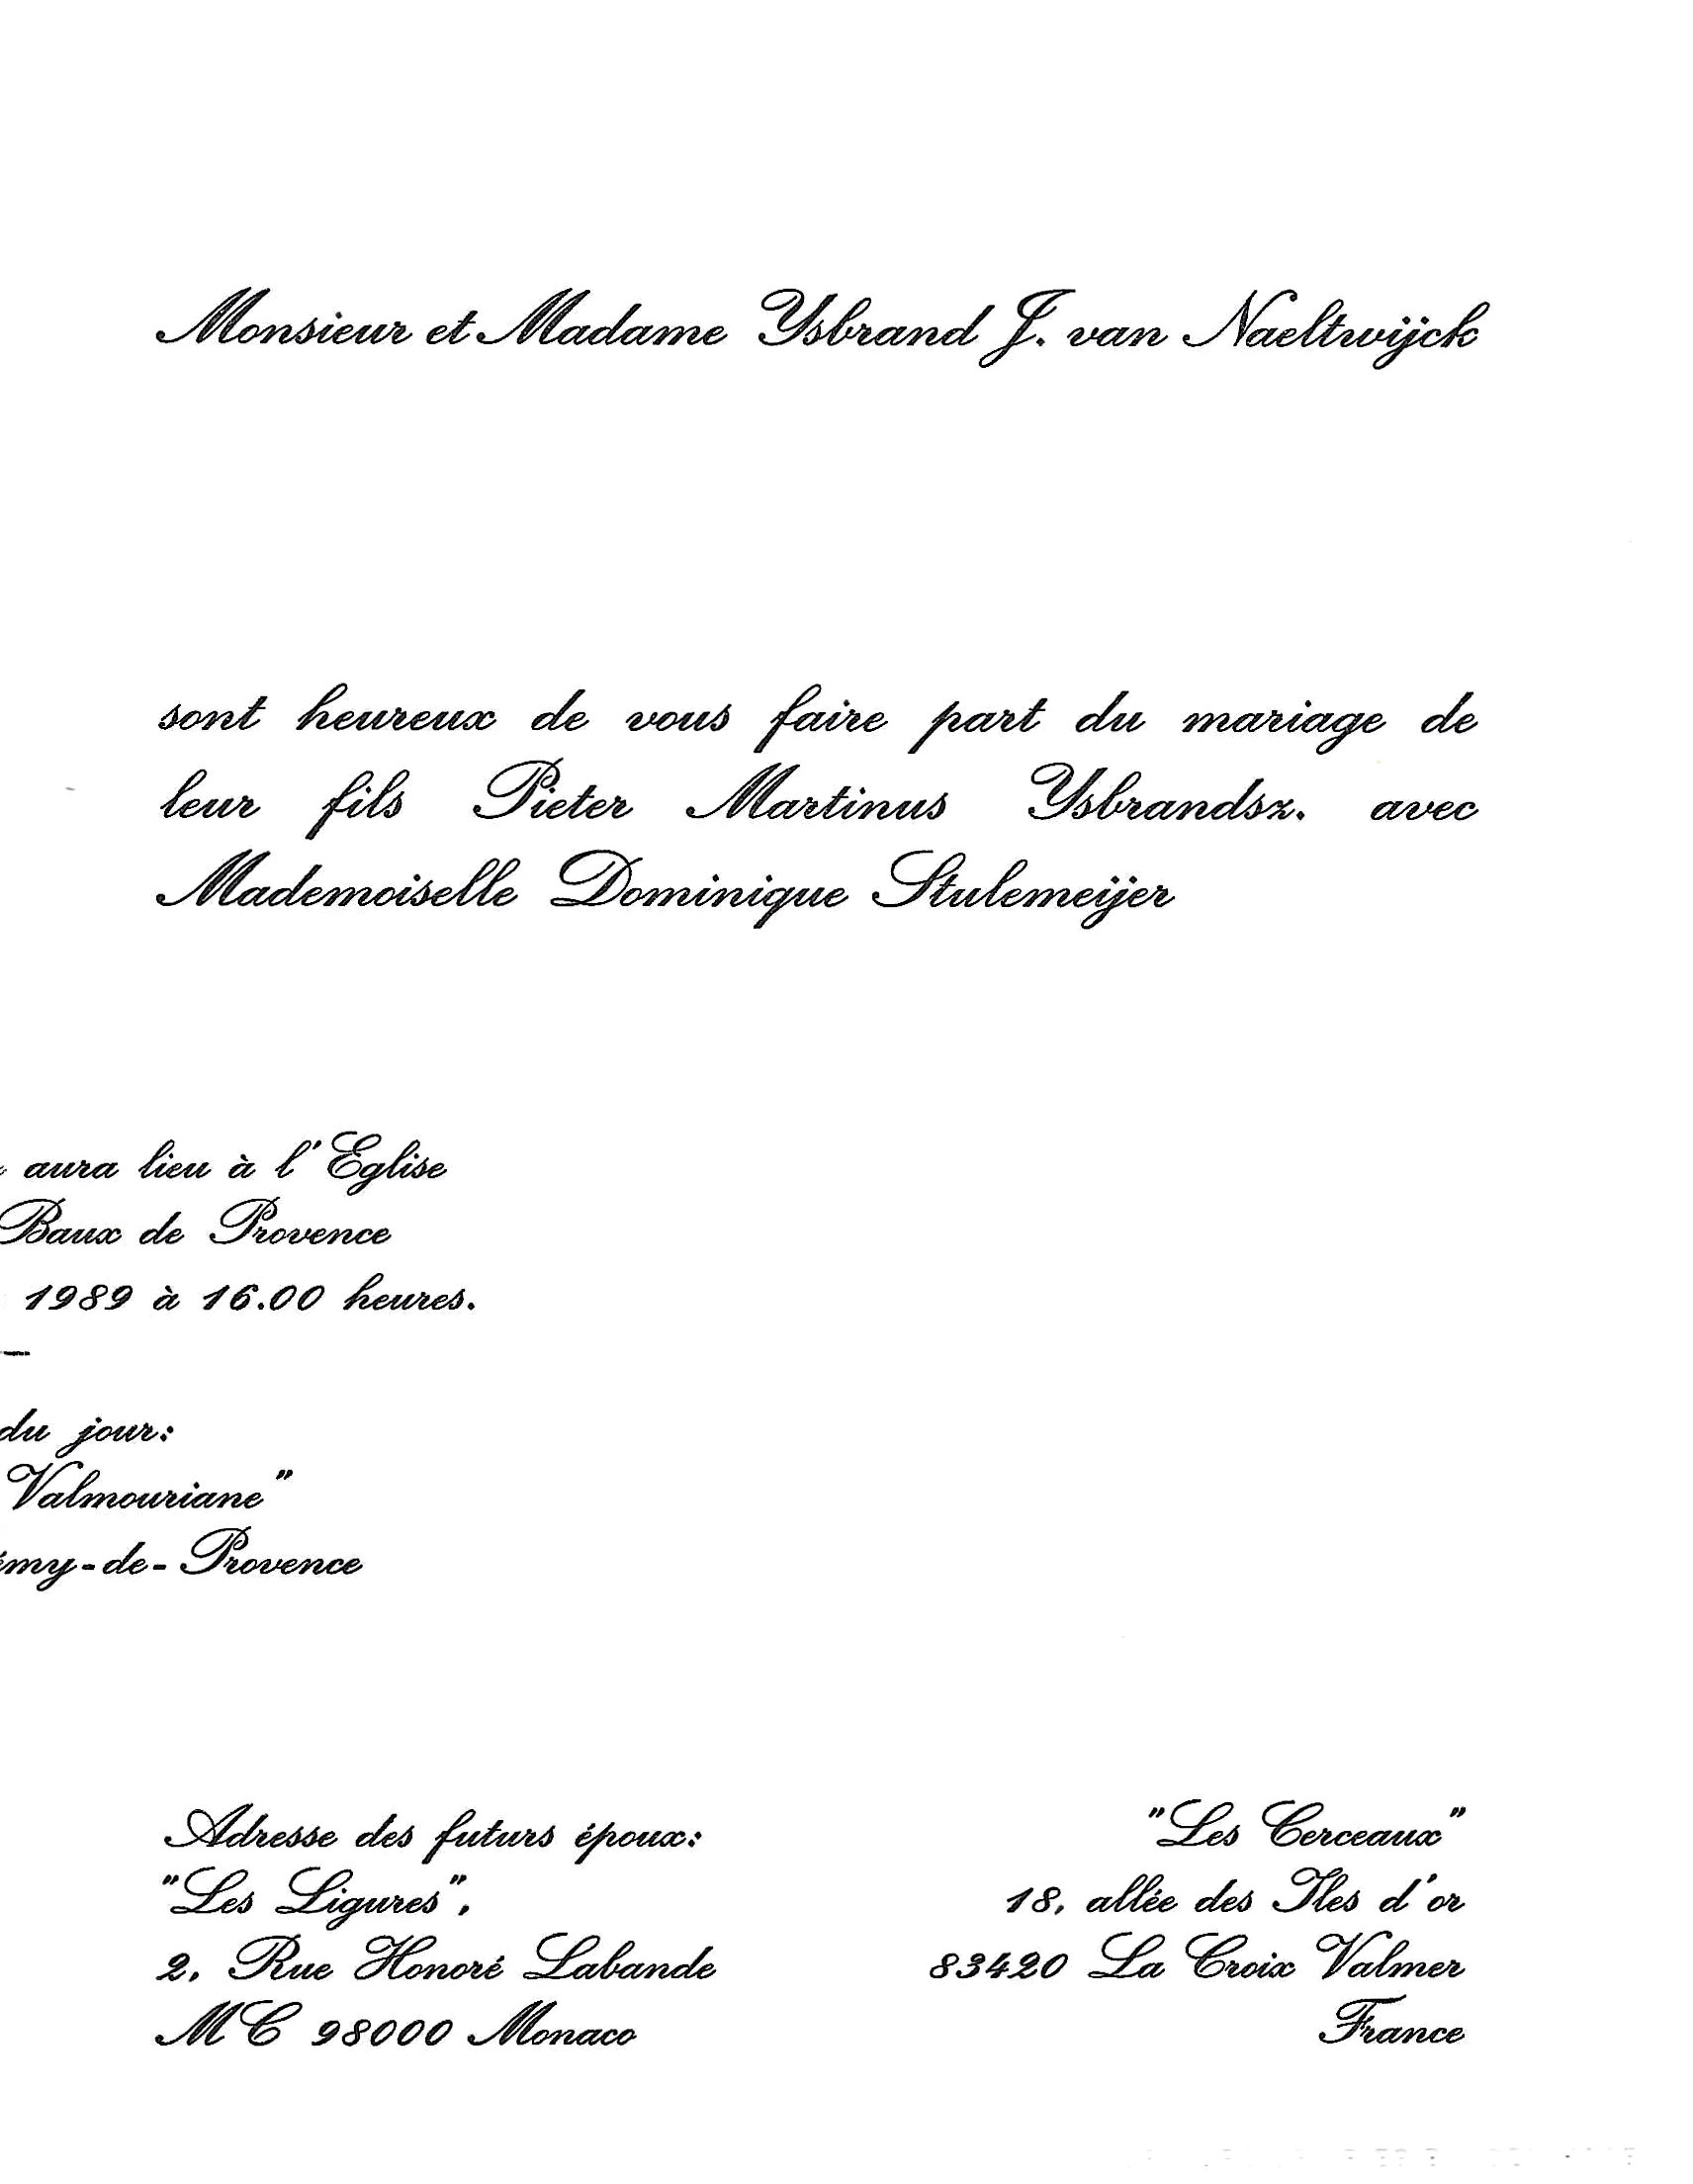 Monsieur et Madame Ysbrand J. van Naeltwijck
sont heureux de vous faire part du mariage de
leur fils Pieter Martinus Ysbrandsz. avec
Mademoiselle Dominique Stulemeijer
aura lieu à l'Eglise
Baux de Provence
1989 à 16.00 heures.
du jour:
Valmouriane"
émy-de-Provence
Adresse des futurs époux:
"Les Ligures",
2, Rue Honoré Labande
MC 98000 Monaco
"Les Cerceaux"
18, allée des Iles d'or
83420 La Croix Valmer
France